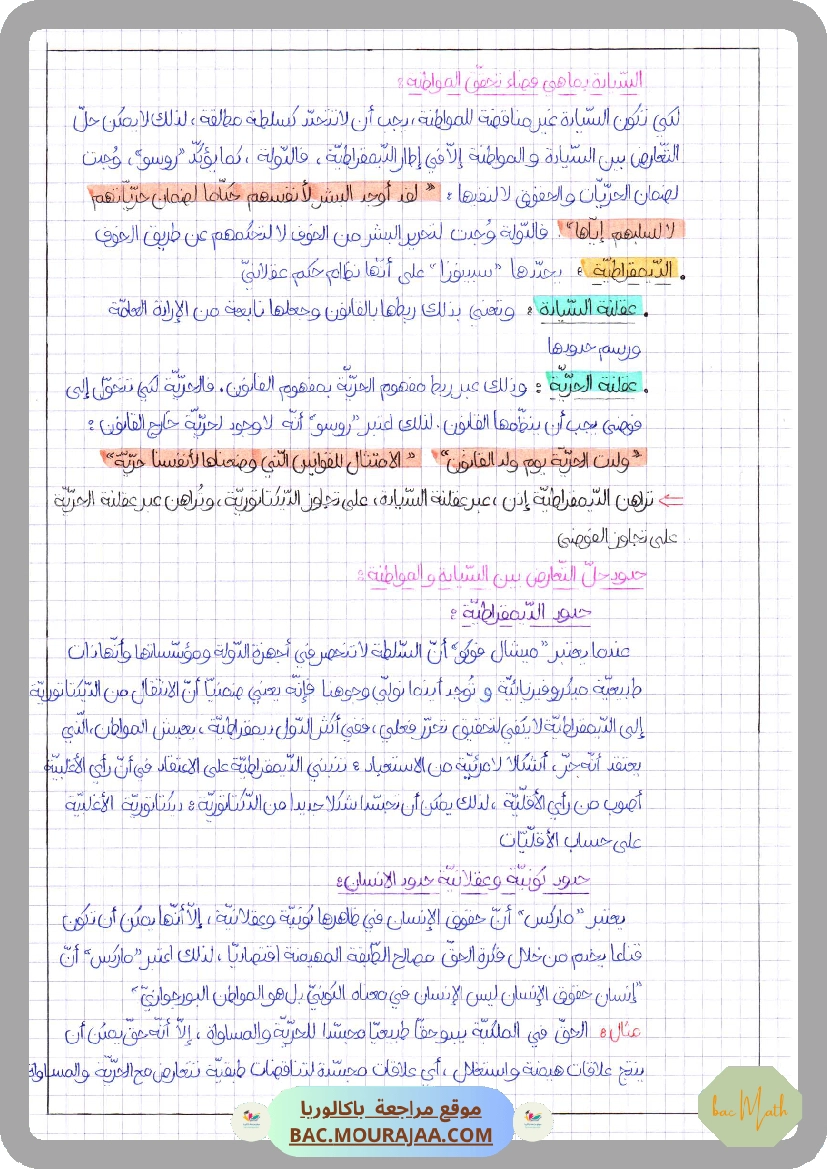 السّيادة بما هي فضاء تحقّق المواطنة :
لكي تكون السّيادة غير مناقضة للمواطنة ، يجب أن لا تتجسّد كسلطة مطلقة ، لذلك لا يمكن حلّ
التّعارض بين السّيادة و المواطنة إلّا في إطار الدّيمقراطيّة ، فالدّولة ، كما يؤكّد "روسو" ، وُجدت
لضمان الحريّات و الحقوق لا لنفيها : " لقد أوجد البشر لأنفسهم حكّاما لضمان حريّاتهم
لا لسلبهم إيّاها " . فالدّولة وُجدت لتحرير البشر من الخوف لا لتحكمهم عن طريق الخوف
. الدّيمقراطيّة : يحدّدها "سبينوزا" على أنّها نظام حكم عقلانيّ
. عقلنة السّيادة : ونعني بذلك ربطها بالقانون وجعلها نابعة من الإرادة العامّة
ورسم حدودها
. عقلنة الحريّة : وذلك عبر ربط مفهوم الحريّة بمفهوم القانون . فالحريّة لكي تتحوّل إلى
فوضى يجب أن ينظّمها القانون . لذلك اعتبر "روسو" أنّه لا وجود لحريّة خارج القانون :
"ولدت الحريّة يوم ولد القانون" " الامتثال للقوانين الّتي وضعناها لأنفسنا حريّة"
⇐ تراهن الدّيمقراطيّة إذن ، عبر عقلنة السّيادة ، على تجاوز الدّيكتاتوريّة ، وتُراهن عبر عقلنة الحريّة
على تجاوز الفوضى
حدود حلّ التّعارض بين السّيادة و المواطنة :
حدود الدّيمقراطيّة :
عندما يعتبر "ميشال فوكو" أنّ السّلطة لا تنحصر في أجهزة الدّولة ومؤسّساتها وأنّها ذات
طبيعيّة ميكروفيزيائيّة و تُوجد أينما نولّي وجوهنا فإنّه يعني ضمنيّا أنّ الانتقال من الدّيكتاتوريّة
إلى الدّيمقراطيّة لا يكفي لتحقيق تحرّر فعلي ، ففي أكثر الدّول ديمقراطيّة ، يعيش المواطن ، الّذي
يعتقد أنّه حرّ ، أشكالا لامرئيّة من الاستعباد : تنبني الدّيمقراطيّة على الاعتقاد في أنّ رأي الأغلبيّة
أصوب من رأي الأقليّة ، لذلك يمكن أن تجسّد شكلا جديدا من الدّكتاتوريّة : ديكتاتوريّة الأغلبيّة
على حساب الأقليّات
حدود كونيّة وعقلانيّة حدود الانسان :
يعتبر "ماركس" أنّ حقوق الإنسان في ظاهرها كونيّة وعقلانيّة ، إلّا أنّها يمكن أن تكون
قناعا يخدم من خلال فكرة الحقّ مصالح الطّبقة المهيمنة اقتصاديّا ، لذلك اعتبر "ماركس" أنّ
"إنسان حقوق الإنسان ليس الإنسان في معناه الكونيّ بل هو المواطن البورجوازيّ"
مثال : الحقّ في الملكيّة يبدو حقّا طبيعيّا مجسّدا للحريّة والمساواة ، إلّا أنّه حقّ يمكن أن
ينتج علاقات هيمنة واستغلال ، أي علاقات مجسّدة لتناقضات طبقيّة تتعارض مع الحريّة والمساواة
موقع مراجعة باكالوريا
BAC.MOURAJAA.COM
bac Math